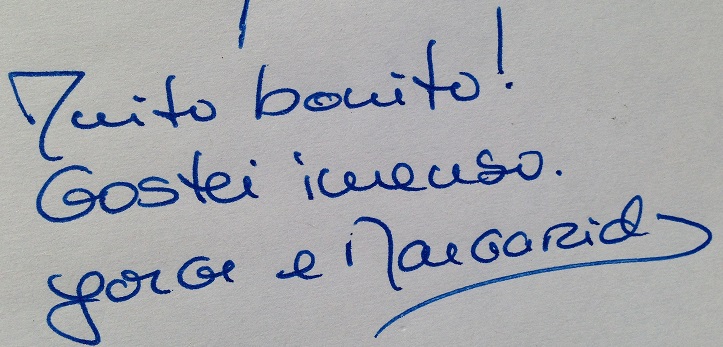 Muito bonito!
Gostei imenso.
Jorge e Margarida